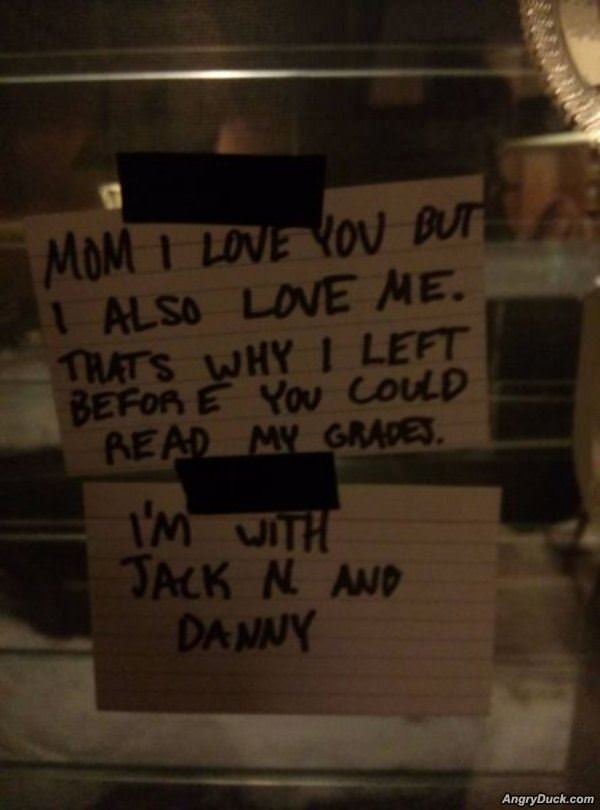 MOM I LOVE YOU BUT
I ALSO LOVE ME.
THATS WHY I LEFT
BEFORE YOU COULD
READ MY GRADES.
I'M WITH
JACK N. AND
DANNY
AngryDuck.com